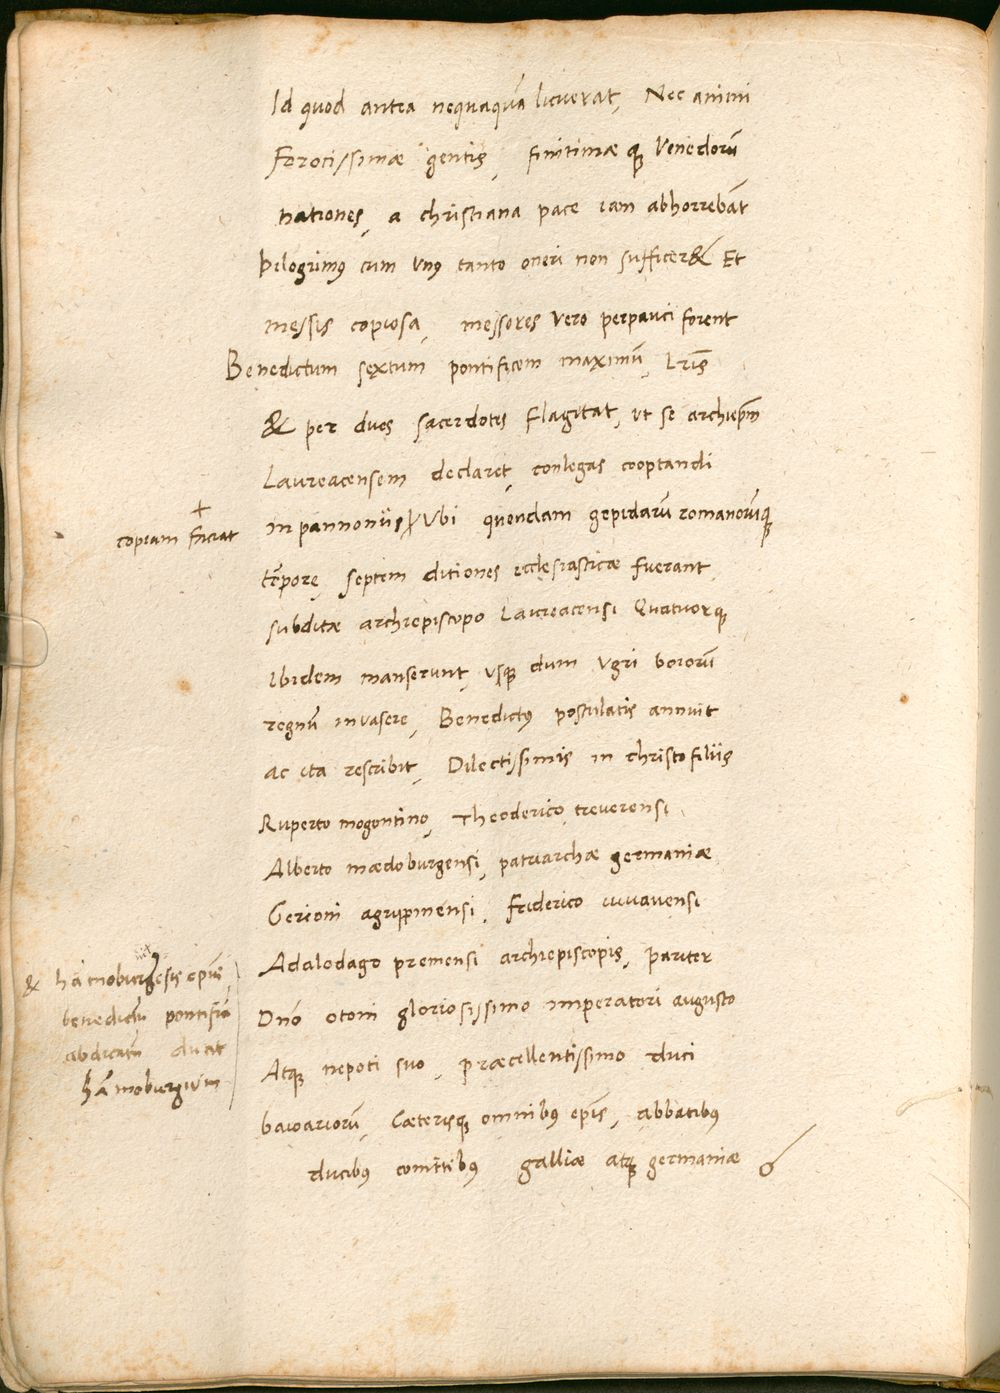 Id quod antea nequaquā licuerat, Nec animi
ferocissimæ gentis, finitimæ qꝫ Venedorū
nationes, a christiana pace iam abhorrebāt
Pilogrimꝰ cum Vnꝰ tanto oneri non suffiᴄer& Et
messis copiosa, messores Vero perpauci forent
Benedictum sextum pontificem maximū, Lr̄is
& per duos sacerdotes flagitat, ut se archiep̄m
Laureacensem declaret, conlegas cooptandi
+
copiam faciat
in pannoniis Vbi quondam gepidarū romanorūqꝫ
tēpore septem ditiones ecclesiasticæ fuerant
subditæ archiepiscopo Laureacensi Quatuorqꝫ
Ibidem manserunt, usqꝫ dum Vgri boiorū
regnū invasere, Benedictꝰ postulatis annuit
ac ita rescribit, Dilectissimis in christo filiis
Ruperto mogontino, Theoderico treverensi
Alberto mædoburgensi, patriarchæ germaniæ
Gerioni agrippinensi, friderico iuvavensi
Adalodago premensi archiepiscopis, pariter
Dnō otoni gloriosissimo imperatori augusto
Atqꝫ nepoti suo, præcellentissimo duci
baioariorū, Cæterisqꝫ omnibꝰ ep̄is, abbatibꝰ
ducibꝰ comitibꝰ galliæ atqꝫ germaniæ
& hāmoburgēsis ep̄us
benedictū pontificē
abdicatū ducit
hāmoburgium